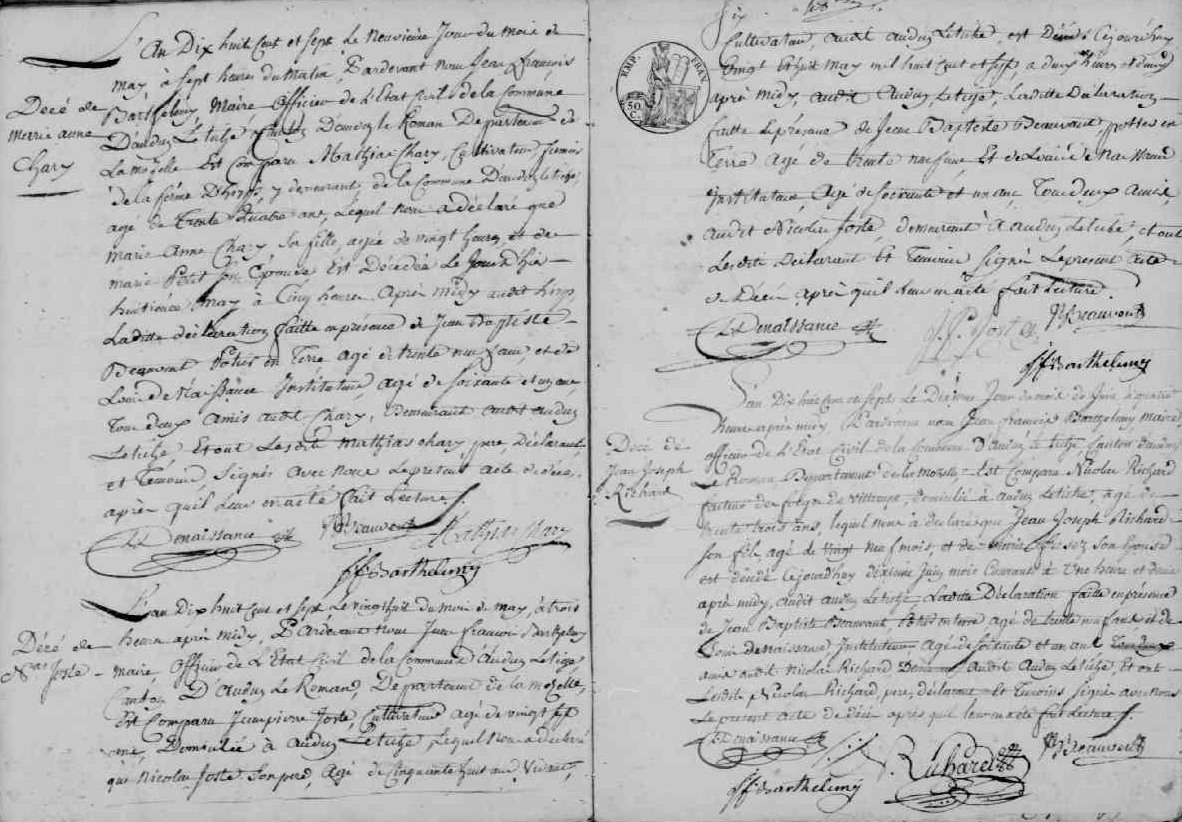 L'An Dix huit Cent et sept Le Neuvieme Jour du mois de
may, à sept heures du Matin, Pardevant Nous Jean françois
Barthelemy, Maire, Officier de L'Etat Civil de la Commune
D'audun Letiche, Canton D'audun le Roman Departement de
La mozelle Est Comparu Mathias Chary, Cultivateur
de la ferme D'hirps, y demeurant, de la Commune Daudun Letige,
agé de Trente Quatre ans, Lequel nous a déclaré que
Marie Anne Chary Sa fille, agée de vingt heures, et de
marie Petit Son Epouse Est Décédée Le Jour D'hier
huitieme may à Cinq heures Après Midy audit hirps,
Laditte déclaration faitte en présence de Jean Baptiste
Beauvent Potier en Terre agé de trente neuf ans, et de
Louis de Naissance Instituteur agé de Soixante et un ans
Tous deux Amis audit Chary, Demeurant audit Audun
Letiche, Et ont Lesdits Mathias Chary, pere, Déclarant,
et Temoins Signés avec nous Le present acte de décès,
après quil leur en a été fait Lecture.
Décé de
Merrie anne
Chary
L Denaissance JBBeauvent Mathias Chary
JfBarthelemy
L'an Dix huit Cent et sept Le vingt huit du mois de may, à trois
heures après midy, Pardevant Nous Jean françois Barthelemy
Maire, Officier de L'Etat Civil de la Commune d'Audun Letige
Canton D'Audun Le Romand, Département de la mozelle,
Est Comparu Jean pierre Joste Cultivateur agé de vingt six
ans, Domicilié à Audun Letiche, Lequel nous a déclaré
que Nicolas Joste Son pere, Agé de Cinquante huit ans Vivant,
Décé de
Nas Joste
EMP. FRAN.
50.
C.
Cultivateur, audit audun Letiche, est Décédé Cejourdhuy
Vingt Et huit May mil huit Cent et sept, à deux heures et demy
après Midy, audit Audun Letige, Laditte Déclaration
faitte en présence de Jean Baptiste Beauvant, pottier en
Terre agé de trente neuf ans, Et de Louis de Naissance
Instituteur, Agé de Soixante et un ans, Tous deux amis,
audit Nicolas Joste, demeurant à audun Letiche, et ont
Lesdits Déclarant Et Temoins Signés Le present acte
de Décès après quil leur en a été fait Lecture.
L Denaissance JP Joste JBBeauvent
JfBarthelemy
L'an Dix huit Cent et sept Le Dixieme Jour du mois de Juin à quatre
heures après midy, Pardevant nous Jean francois Barthelemy maire,
officier de L'Etat Civil de la Commune d'Audun le tiche, Canton d'audun
Le Roman Departement de la mozelle, Est Comparu Nicolas Richard
facteur de forges de Villerupt, domicilié à Audun Letiche, agé de
trente trois ans, lequel nous à déclaré que Jean Joseph Richard
son fils, agé de vingt neuf mois, et de son Epouse
est décédé Cejourdhuy dixieme Juin mois Courant à Une heure et demie
après midy, audit audun Letiche Laditte Déclaration faitte en présence
de Jean Baptiste Beauvant, Potier en terre agé de trente neuf ans et de
Louis de naissance Instituteur Agé de Soixante et un ans Tous deux
amis audit Nicolas Richard Demeurant audit Audun Letiche, Et ont
Lesdits Nicolas Richard, pere, déclarant Et Temoins Signé avec nous
Le present acte de décès après quil leur en a été fait Lecture.
Décé de
Jean Joseph
Richart
L Denaissance JBBeauvent
Richard
JfBarthelemy